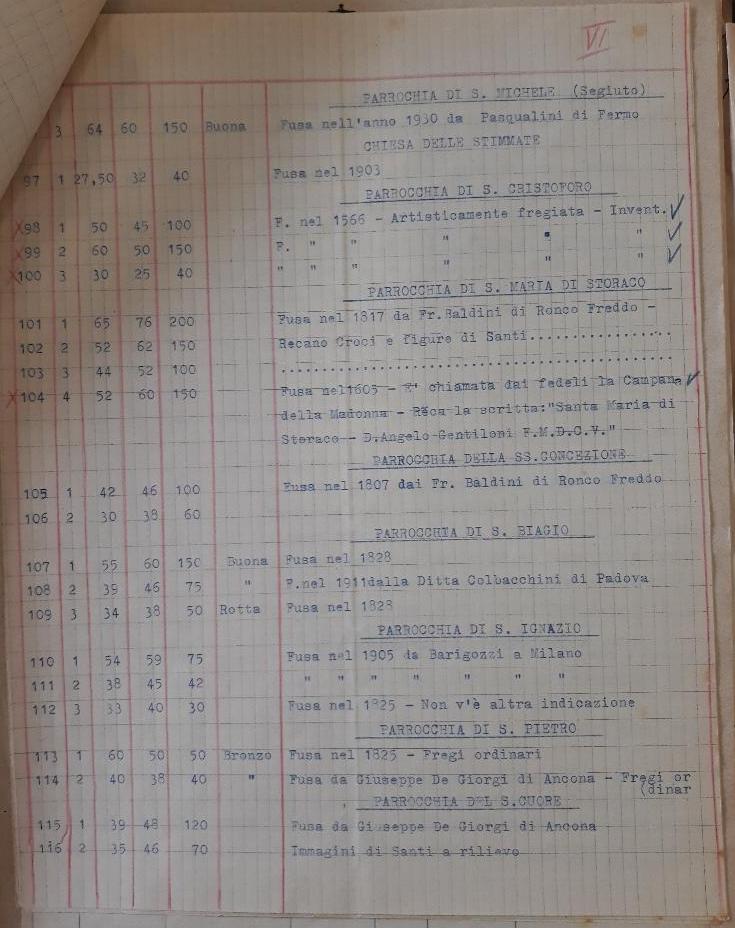 VI
PARROCHIA DI S. MICHELE (Segiuto)
3 64 60 150 Buona Fusa nell'anno 1930 da Pasqualini di Fermo
CHIESA DELLE STIMMATE
97 1 27,50 32 40 Fusa nel 1903
PARROCCHIA DI S. CRISTOFORO
X98 1 50 45 100 F. nel 1566 - Artisticamente fregiata - Invent. ✓
X99 2 60 50 150 F. " " " " " ✓
X100 3 30 25 40 " " " " " " ✓
PARROCCHIA DI S. MARIA DI STORACO
101 1 65 76 200 Fusa nel 1817 da Fr.Baldini di Ronco Freddo -
102 2 52 62 150 Recano Croci e figure di Santi.................
103 3 44 52 100 ...............................................
X104 4 52 60 150 Fusa nel1605 - E' chiamata dai fedeli la Campana ✓
della Madonna - Reca la scritta:"Santa Maria di
Storaco-- D.Angelo Gentiloni F.M.D.C.V."
PARROCCHIA DELLA SS.CONCEZIONE
105 1 42 46 100 Fusa nel 1807 dai Fr. Baldini di Ronco Freddo
106 2 30 38 60
PARROCCHIA DI S. BIAGIO
107 1 55 60 150 Buona Fusa nel 1828
108 2 39 46 75 " F.nel 1911dalla Ditta Colbacchini di Padova
109 3 34 38 50 Rotta Fusa nel 1828
PARROCCHIA DI S. IGNAZIO
110 1 54 59 75 Fusa nel 1905 da Barigozzi a Milano
111 2 38 45 42 " " " " " "
112 3 33 40 30 Fusa nel 1825 - Non v'è altra indicazione
PARROCCHIA DI S. PIETRO
113 1 60 50 50 Bronzo Fusa nel 1825 - Fregi ordinari
114 2 40 38 40 " Fusa da Giuseppe De Giorgi di Ancona - Fregi or
(dinar
PARROCCHIA DEL S.CUORE
115 1 39 48 120 Fusa da Giuseppe De Giorgi di Ancona
116 2 35 46 70 Immagini di Santi a rilievo